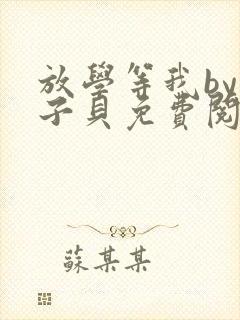 放學等我by
子貝免費閱
蘇某某